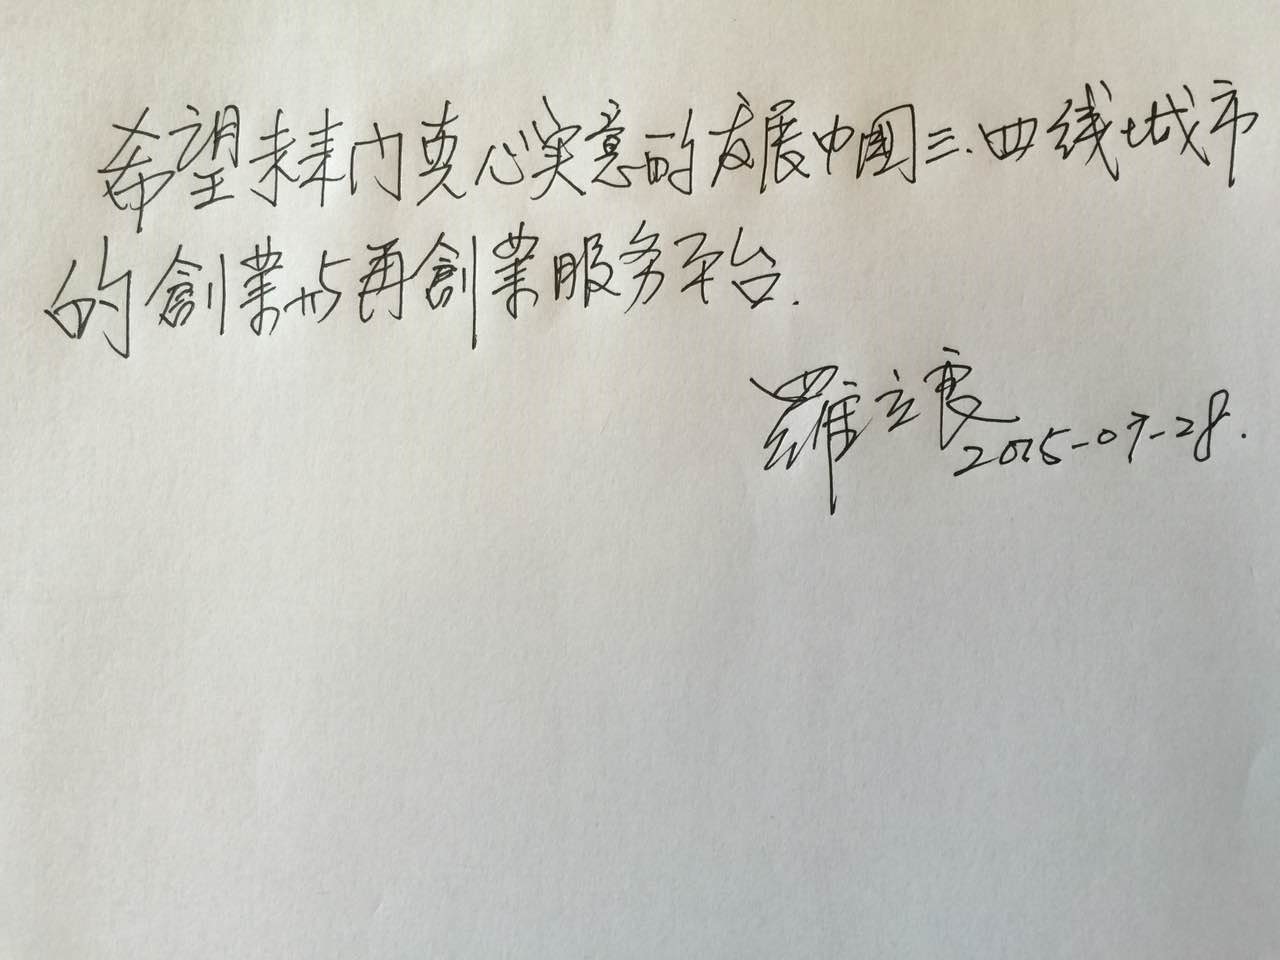 希望未来门真心实意的发展中國三.四线城市
的創業与再創業服务平台.
羅立
2015-07-28.